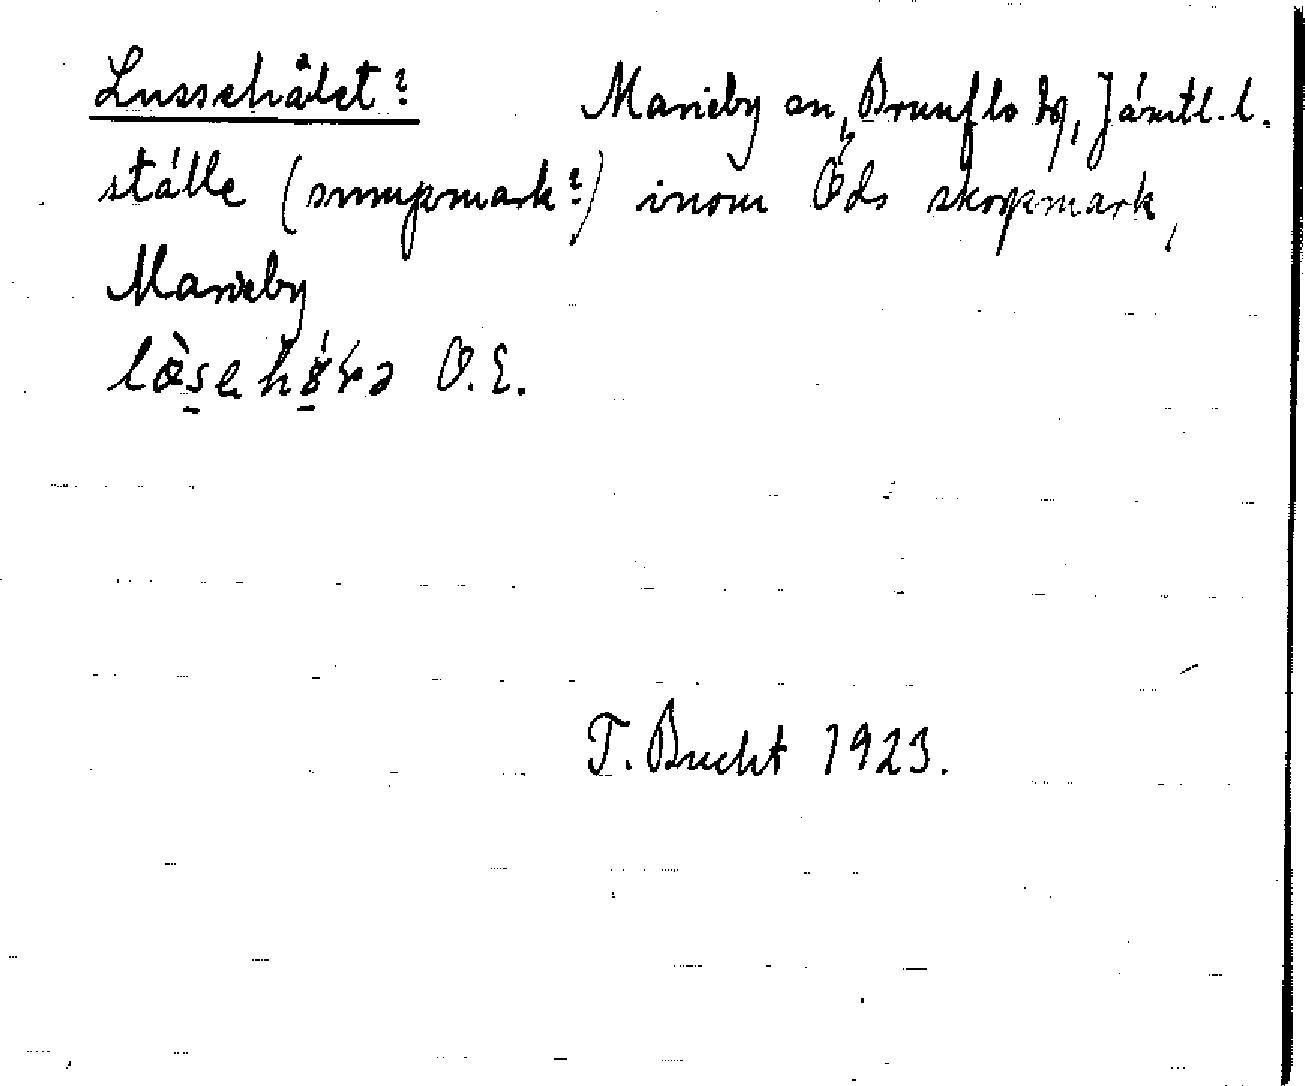 Lussehålet? Marieby sn, Brunflo tg, Jämtl. l.
ställe (sumpmark?) inom Öds skogsmark,
Marieby
O.E.
T. Bucht 1923.